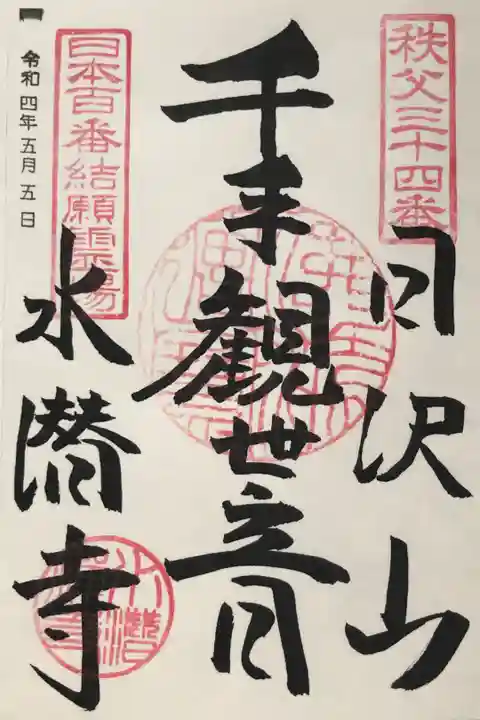 秩父三十四番
日沢山
千手観世音
日本百番結願霊場
水潜寺
令和四年五月五日